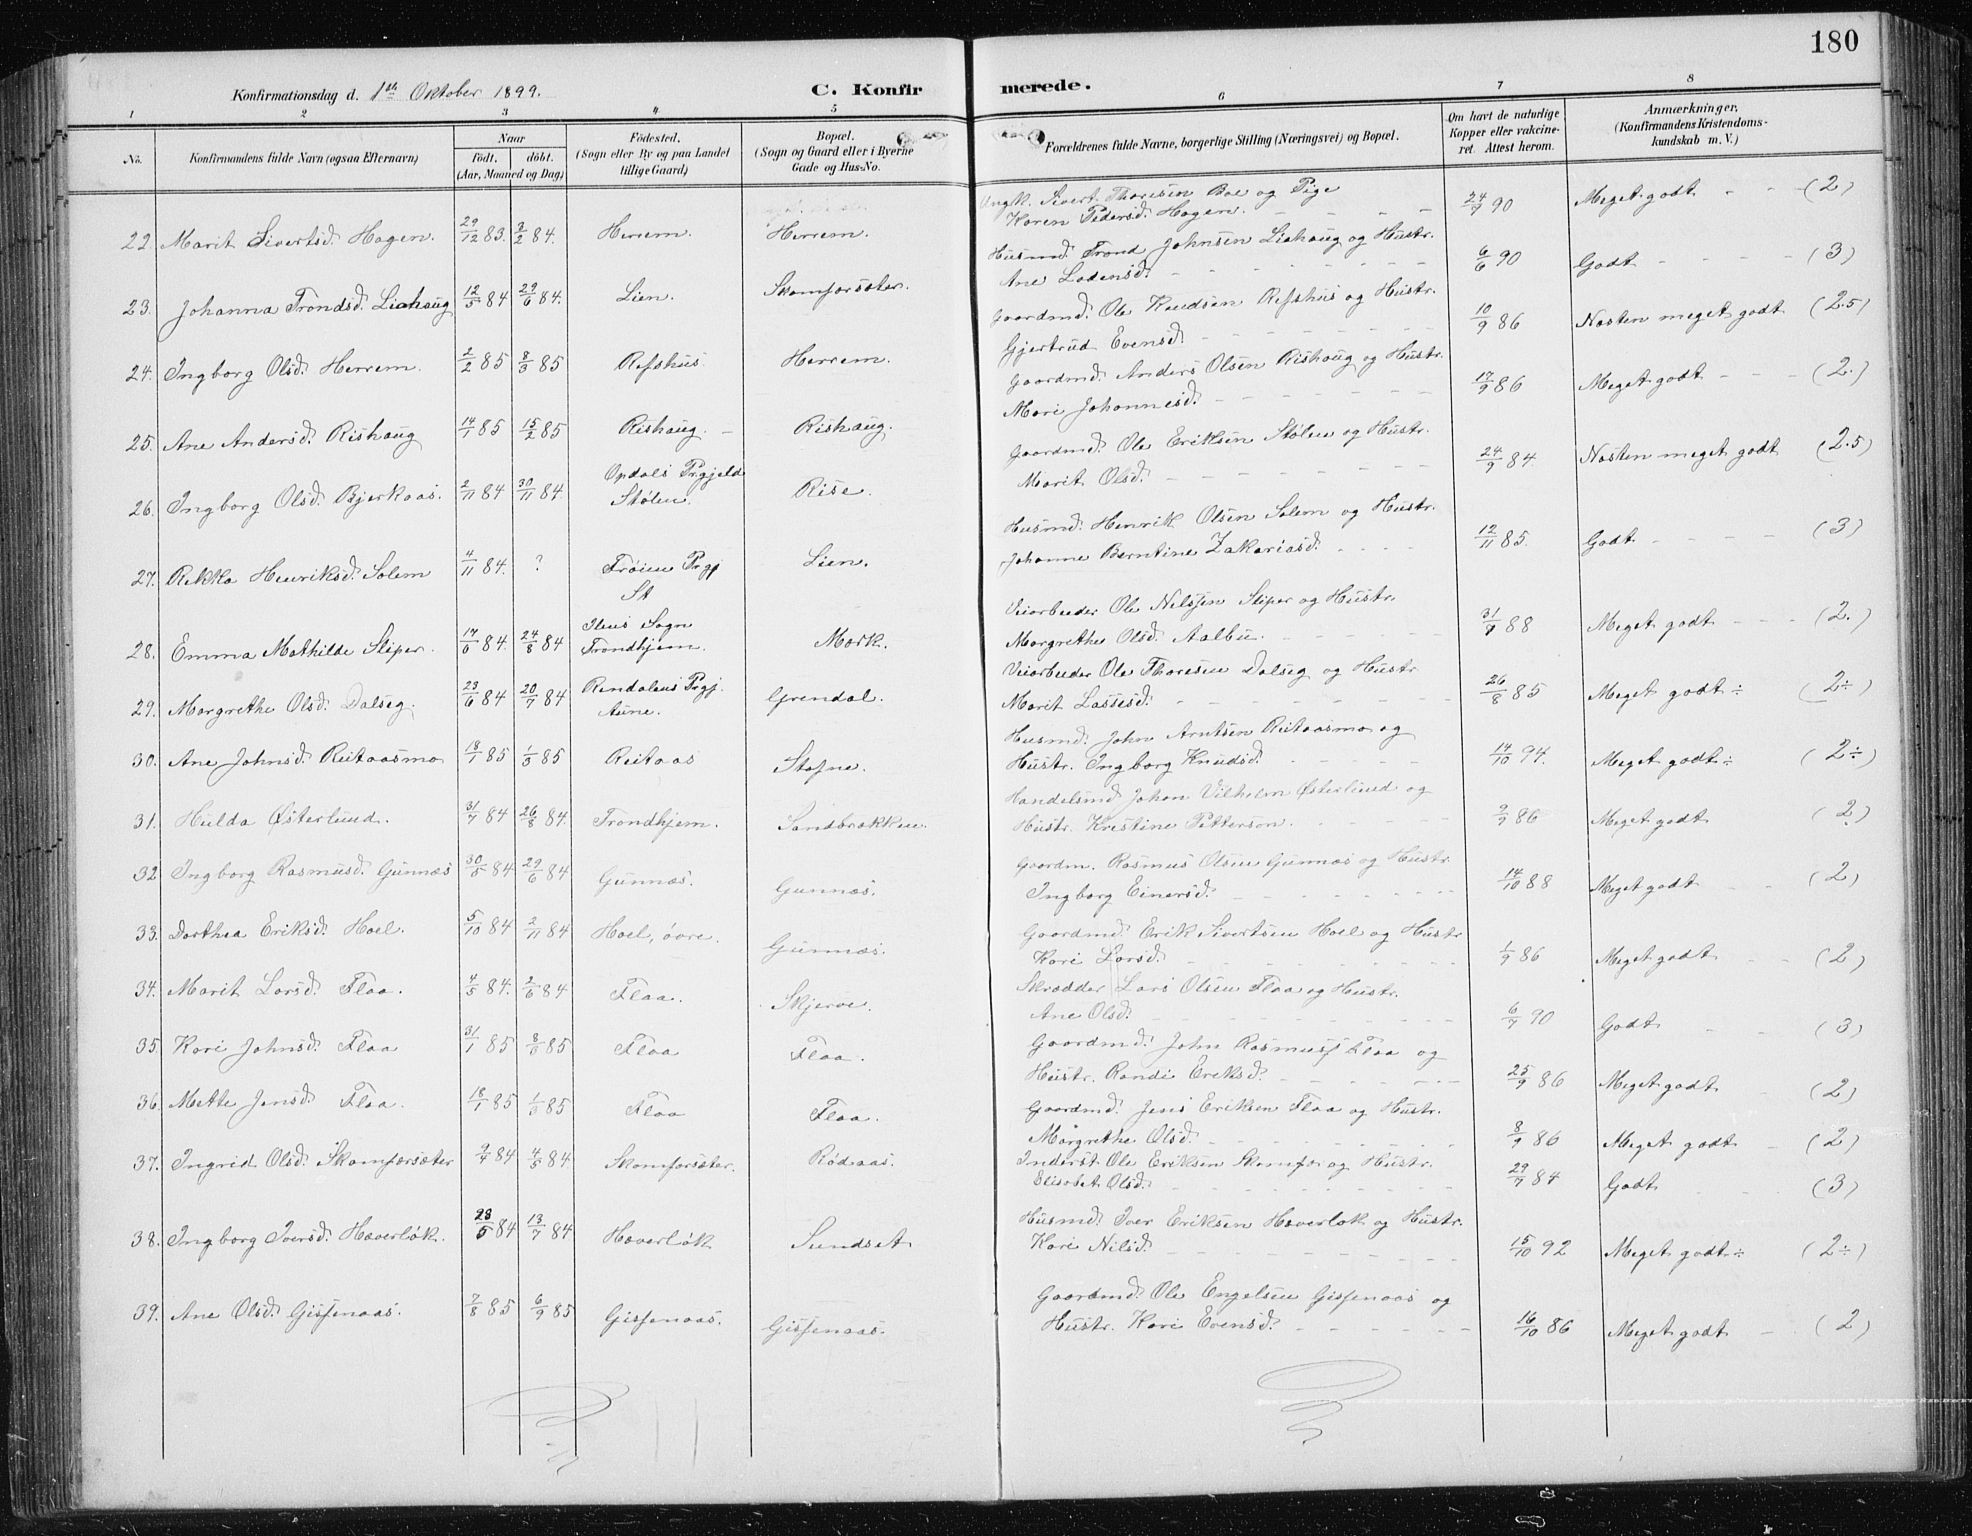 180
Konfirmationsdag d. 1ste Oktober 1899.
C. Konfirmerede.
1 2 3 4 5 6 7 8
No. Konfirmandens fulde Navn (ogsaa Efternavn) Naar født, døbt. (Aar, Maaned og Dag) Fødested. (Sogn eller By og paa Landet tillige Gaard) Bopæl. (Sogn og Gaard eller i Byerne Gade og Hus-No. Forældrenes fulde Navne, borgerlige Stilling (Næringsvei) og Bopæl. Om havt de naturlige Kopper eller vakcineret. Attest herom. Anmærkninger. (Konfirmandens Kristendomskundskab m. V.)
22. Marit Sivertsd. Hagen. 29/12 83. 3/2 84. Herrem. Herrem. Ungk. Sivert Thoresen Boe og Pige Karen Pedersd. Hagen. 24/9 90 Meget godt (2)
23. Johanna Trondsd. Liahaug 12/5 84 29/6 84. Lien. Skamfarsæter. Husmd. Trond Johnsen Liahaug og Hustr. Ane Ladensd. 6/6 90 Godt (3)
24. Ingborg Olsd. Herrem. 2/2 85 8/3 85 Refshus. Herrem. Gaardmd. Ole Knudsen Refshus og Hustr. Gjertrud Evensd. 10/9 86 Næsten meget godt (2.5)
25. Ane Andersd. Rishaug 14/1 85 15/2 85 Rishaug. Rishaug. Gaardmd. Anders Olsen Rishaug og Hustr. Mari Johannesd. 17/9 86 Meget godt (2.)
26. Ingborg Olsd. Bjerkaas. 2/11 84 30/11 84. Opdals Prgjeld Stølen. Rise. Gaardmd. Ole Eriksen Stølen og Hustr. Marit Olsd. 24/9 84. Næsten meget godt (2.5)
27. Rikka Henriksd. Solem 4/11 84. ? Frøien Prgj St Lien. Husmd. Henrik Olsen Solem og Hustr. Johanne Berntine Zakariasd. 12/11 85. Godt (3)
28. Emma Mathilde Sliper. 17/6 84. 24/8 84 Ilens Sogn Trondhjem. Mork. Veiarbeider Ole Nilssen Sliper og Hustr. Margrethe Olsd. Aalbu. 31/7 88 Meget godt (2.)
29. Margrethe Olsd. Dalseg. 23/6 84 20/7 84 Rendalens Prgj. Aune. Grendal. Veiarbeider Ole Thoresen Dalseg og Hustr Marit Lassesd. 26/8 85 Meget godt ÷ (2÷)
30. Ane Johnsd. Reitaasmo 18/1 85 1/3 85 Reitaas Stofne. Husmd. John Arntsen Reitaasmo og Hustr. Ingborg Knudsd. 14/10 94. Meget godt÷ (2÷)
31. Hulda Østerlund. 31/7 84 26/8 84. Trondhjem. Sandbrækken. Handelsmd Johan Vilhelm Østerlund og Hustr. Kristine Petterson. 2/9 86 Meget godt (2)
32 Ingborg Rasmusd. Gunnæs 30/5 84 29/6 84 Gunnæs. Gunnæs. Gaardm. Rasmus Olsen Gunnæs og Hustr. Ingborg Einarsd. 14/10 88 Meget godt (2)
33. Dorthea Eriksd. Hoel. 5/10 84 2/11 84 Hoel, övre. Gunnæs. Gaardmd. Erik Sivertsen Hoel og Hustr Kari Larsd. 1/9 86 Meget godt (2)
34. Marit Larsd. Flaa. 4/5 84. 2/6 84 Flaa. Skjerve. Skrædder Lars Olsen Flaa og Hustr. Ane Olsd. 6/7 90 Godt (3)
35. Kari Johnsd. Flaa 31/1 85 8/3 85 Flaa Flaa. Gaardmd. John Rasmuss Flaa og Hustr. Randi Eriksd. 25/9 86 Meget godt (2)
36. Mette Jensd. Flaa. 18/1 85 1/3 85 Flaa Flaa. Gaardmd. Jens Eriksen Flaa og Hustr. Margrethe Olsd. 8/9 86 Meget godt (2)
37. Ingrid Olsd. Skamfarsæter 9/4 84 4/5 84 Skamfarsæter. Rødaas. Inderst Ole Eriksen Skamfar og Hustr. Elisabet Olsd. 29/7 84 Godt (3)
38. Ingborg Iversd. Hæverløk. 23/5 84 13/7 84 Hæverløk Sundset Husmd. Iver Eriksen Hæverløk og Hustr. Kari Nilsd. 15/10 92 Meget godt÷ (2÷)
39. Ane Olsd. Gisfenaas. 7/8 85 6/9 85 Gisfenaas. Gisfenaas. Gaardmd. Ole Engelsen Gisfenaas og Hustr. Kari Evensd. 16/10 86 Meget godt (2)